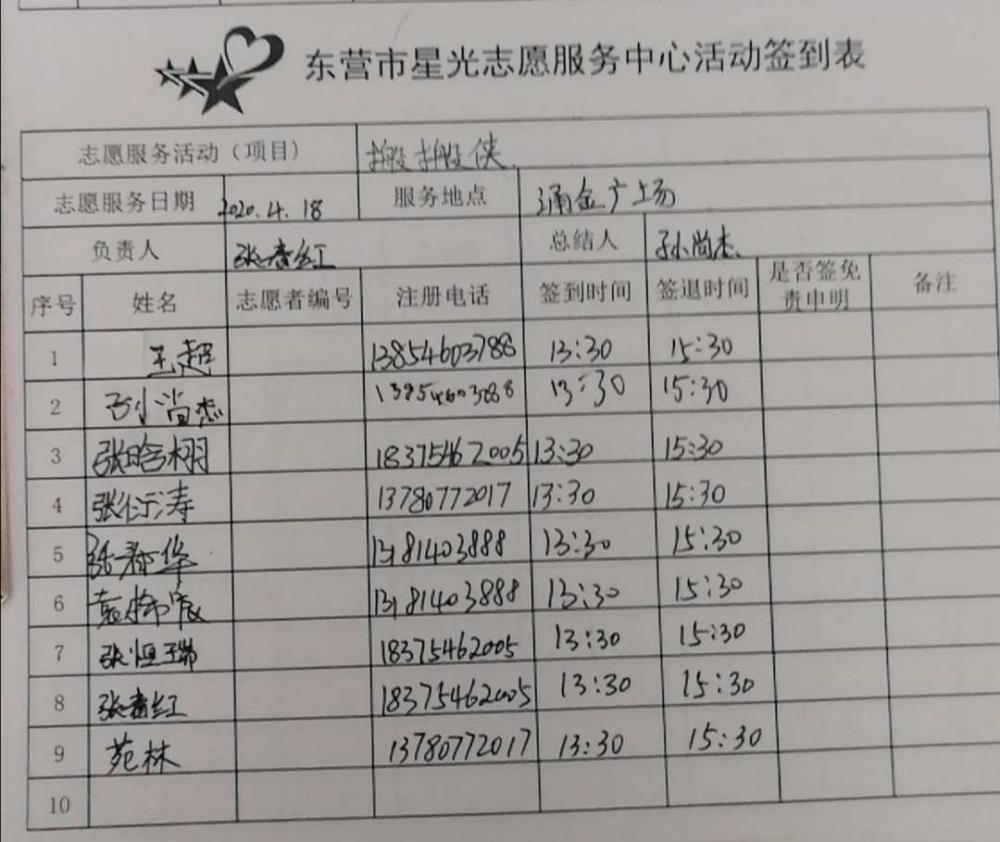 东营市星光志愿服务中心活动签到表
志愿服务活动（项目） 搬搬侠
志愿服务日期 2020.4.18 服务地点 涌金广场
负责人 张春红 总结人 孙尚杰
序号 姓名 志愿者编号 注册电话 签到时间 签退时间 是否签免责申明 备注
1 王超 13854603788 13:30 15:30
2 孙尚杰 13:30 15:30
3 张晗栩 18375462005 13:30 15:30
4 张衍涛 13780772017 13:30 15:30
5 张春华 13181403888 13:30 15:30
6 13181403888 13:30 15:30
7 张恒瑞 18375462005 13:30 15:30
8 张春红 18375462005 13:30 15:30
9 苑林 13780772017 13:30 15:30
10